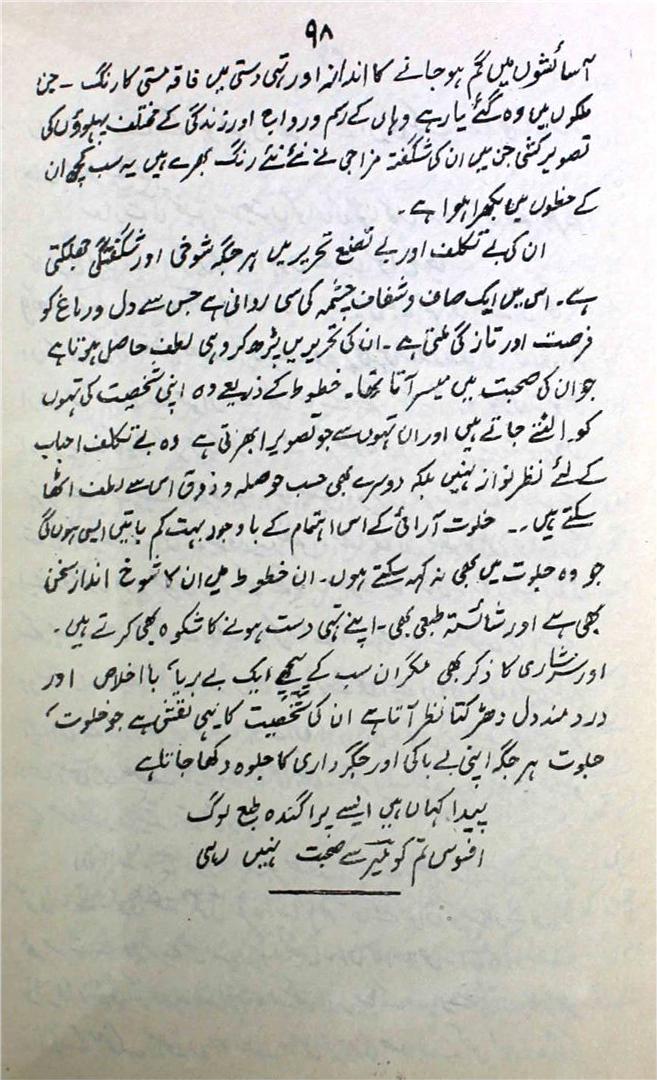 ۹۸
آسائشوں میں گم ہو جانے کا انداز اور تہی دستی میں فاقہ مستی کا رنگ - جن
ملکوں میں وہ گئے یا رہے وہاں کے رسم و رواج اور زندگی کے مختلف پہلوؤں کی
تصویر کشی جن میں ان کی شگفتہ مزاجی نے نئے نئے رنگ بھرے ہیں یہ سب کچھ ان
کے خطوں میں بکھرا ہوا ہے ۔
ان کی بے تکلف اور بے تصنع تحریر میں ہر جگہ شوخی اور شگفتگی جھلکتی
ہے۔ اس میں ایک صاف و شفاف چشمہ کی سی روانی ہے جس سے دل و دماغ کو
فرحت اور تازگی ملتی ہے ۔ ان کی تحریریں پڑھ کر وہی لطف حاصل ہوتا ہے
جو ان کی صحبت میں میسر آتا تھا۔ خطوط کے ذریعے وہ اپنی شخصیت کی تہوں
کو الٹتے جاتے ہیں اور ان تہوں سے جو تصویر ابھرتی ہے وہ بے تکلف احباب
کے لئے نظر نواز نہیں بلکہ دوسرے بھی حسب حوصلہ و ذوق اس سے لطف اٹھا
سکتے ہیں ۔۔ خلوت آرائی کے اس اہتمام کے باوجود بہت کم باتیں ایسی ہوں گی
جو وہ جلوت میں بھی نہ کہہ سکتے ہوں۔ ان خطوط میں ان کا شوخ انداز سخن
بھی ہے اور شائستہ طبعی بھی ۔ اپنے تہی دست ہونے کا شکوہ بھی کرتے ہیں ۔
اور سرشاری کا ذکر بھی مگر ان سب کے پیچھے ایک بے ریا، با اخلاص اور
درد مند دل دھڑکتا نظر آتا ہے ان کی شخصیت کا یہی نقش ہے جو خلوت،
جلوت ہر جگہ اپنی بے باکی اور جگر داری کا جلوہ دکھا جاتا ہے
پیدا کہاں ہیں ایسے پراگندہ طبع لوگ
افسوس تم کو میرؔ سے صحبت نہیں رہی